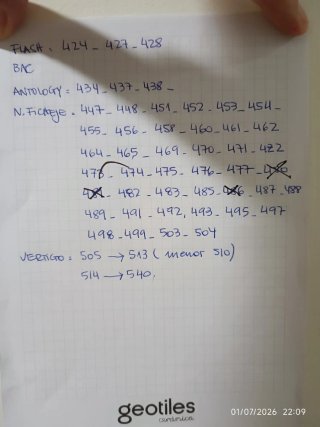 FLASH = 424 - 427 - 428
BAC
ANTOLOGY = 434 - 437 - 438 -
N. FICHAJE = 447 - 448 - 451 - 452 - 453 - 454 -
455 - 456 - 458 - 460 - 461 - 462
464 - 465 - 469 - 470 - 471 - 472
473 - 474 - 475 - 476 - 477 -
482 - 483 - 485 - 487 - 488
489 - 491 - 492, 493 - 495 - 497
498 - 499 - 503 - 504
VERTIGO = 505 → 513 ( menor 510)
514 → 540.
geotiles
cerámica
01/07/2026 22:09